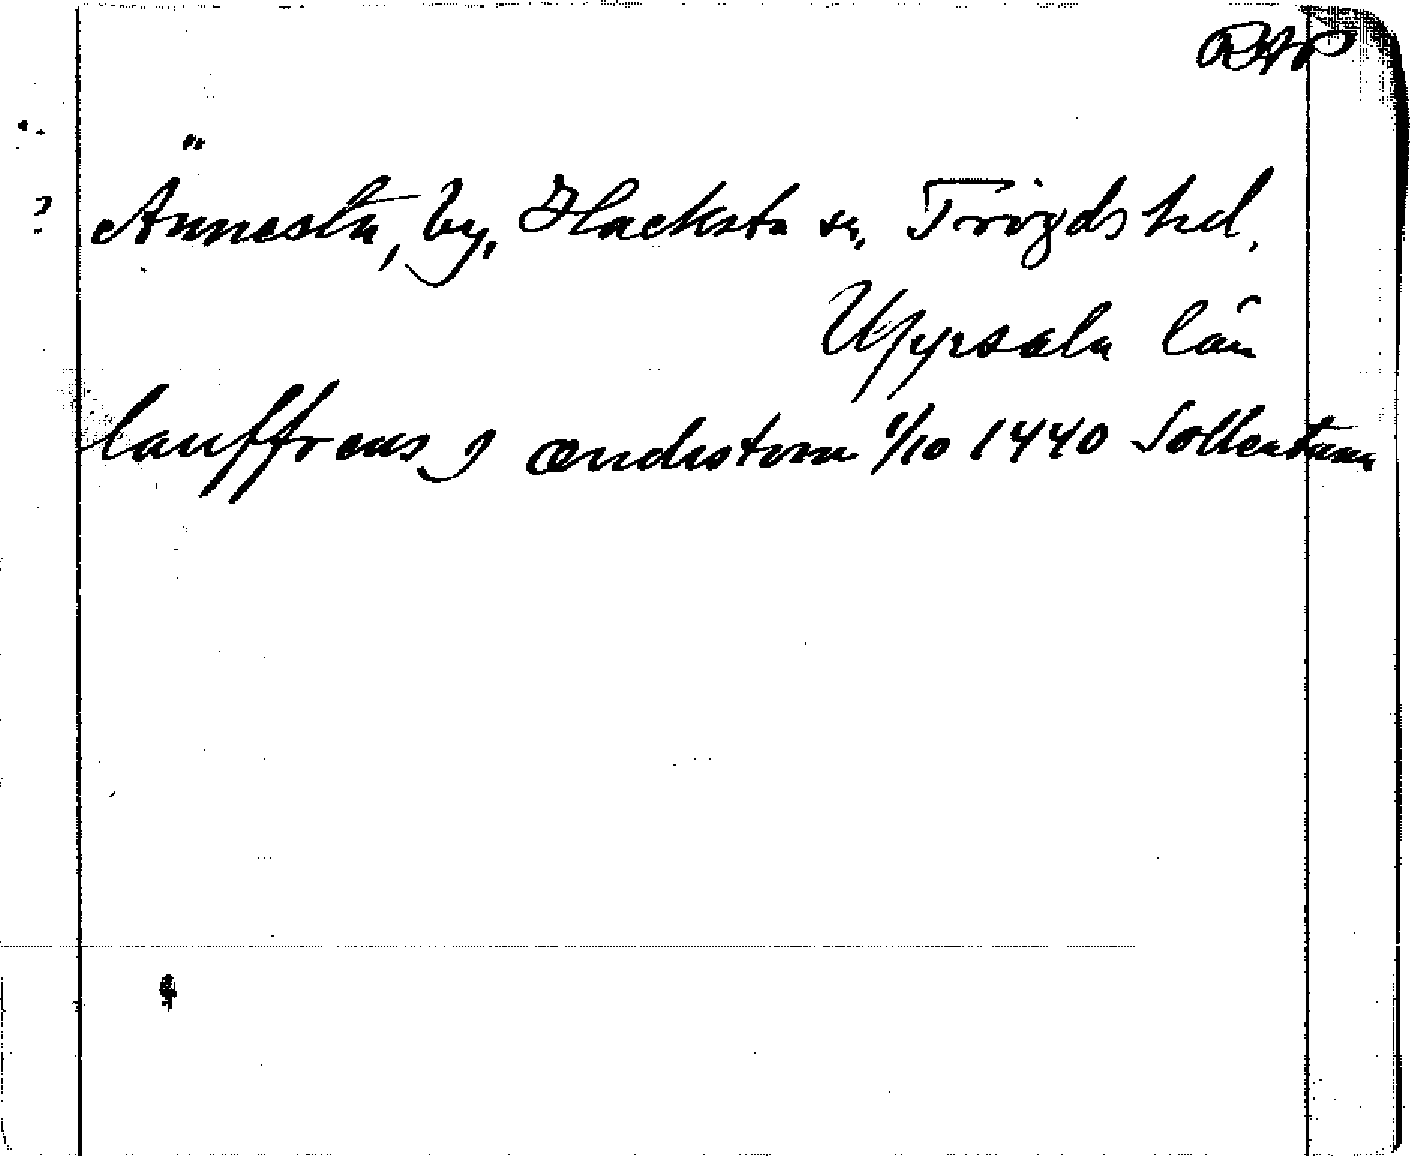 RAP
? Ännesta, by, Hacksta sn, Trögds hd.
Uppsala län
lauffrens j ændistom 1/10 1440 Sollentuna